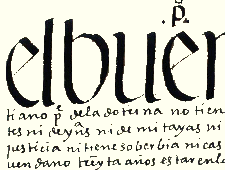 .p.
el buen
tiano p dela doterna no tien
tes ni deyñs ni de mi tayas ni
pesticia ni tiene soberbia ni cas
uen dano treȳta años estar enlo